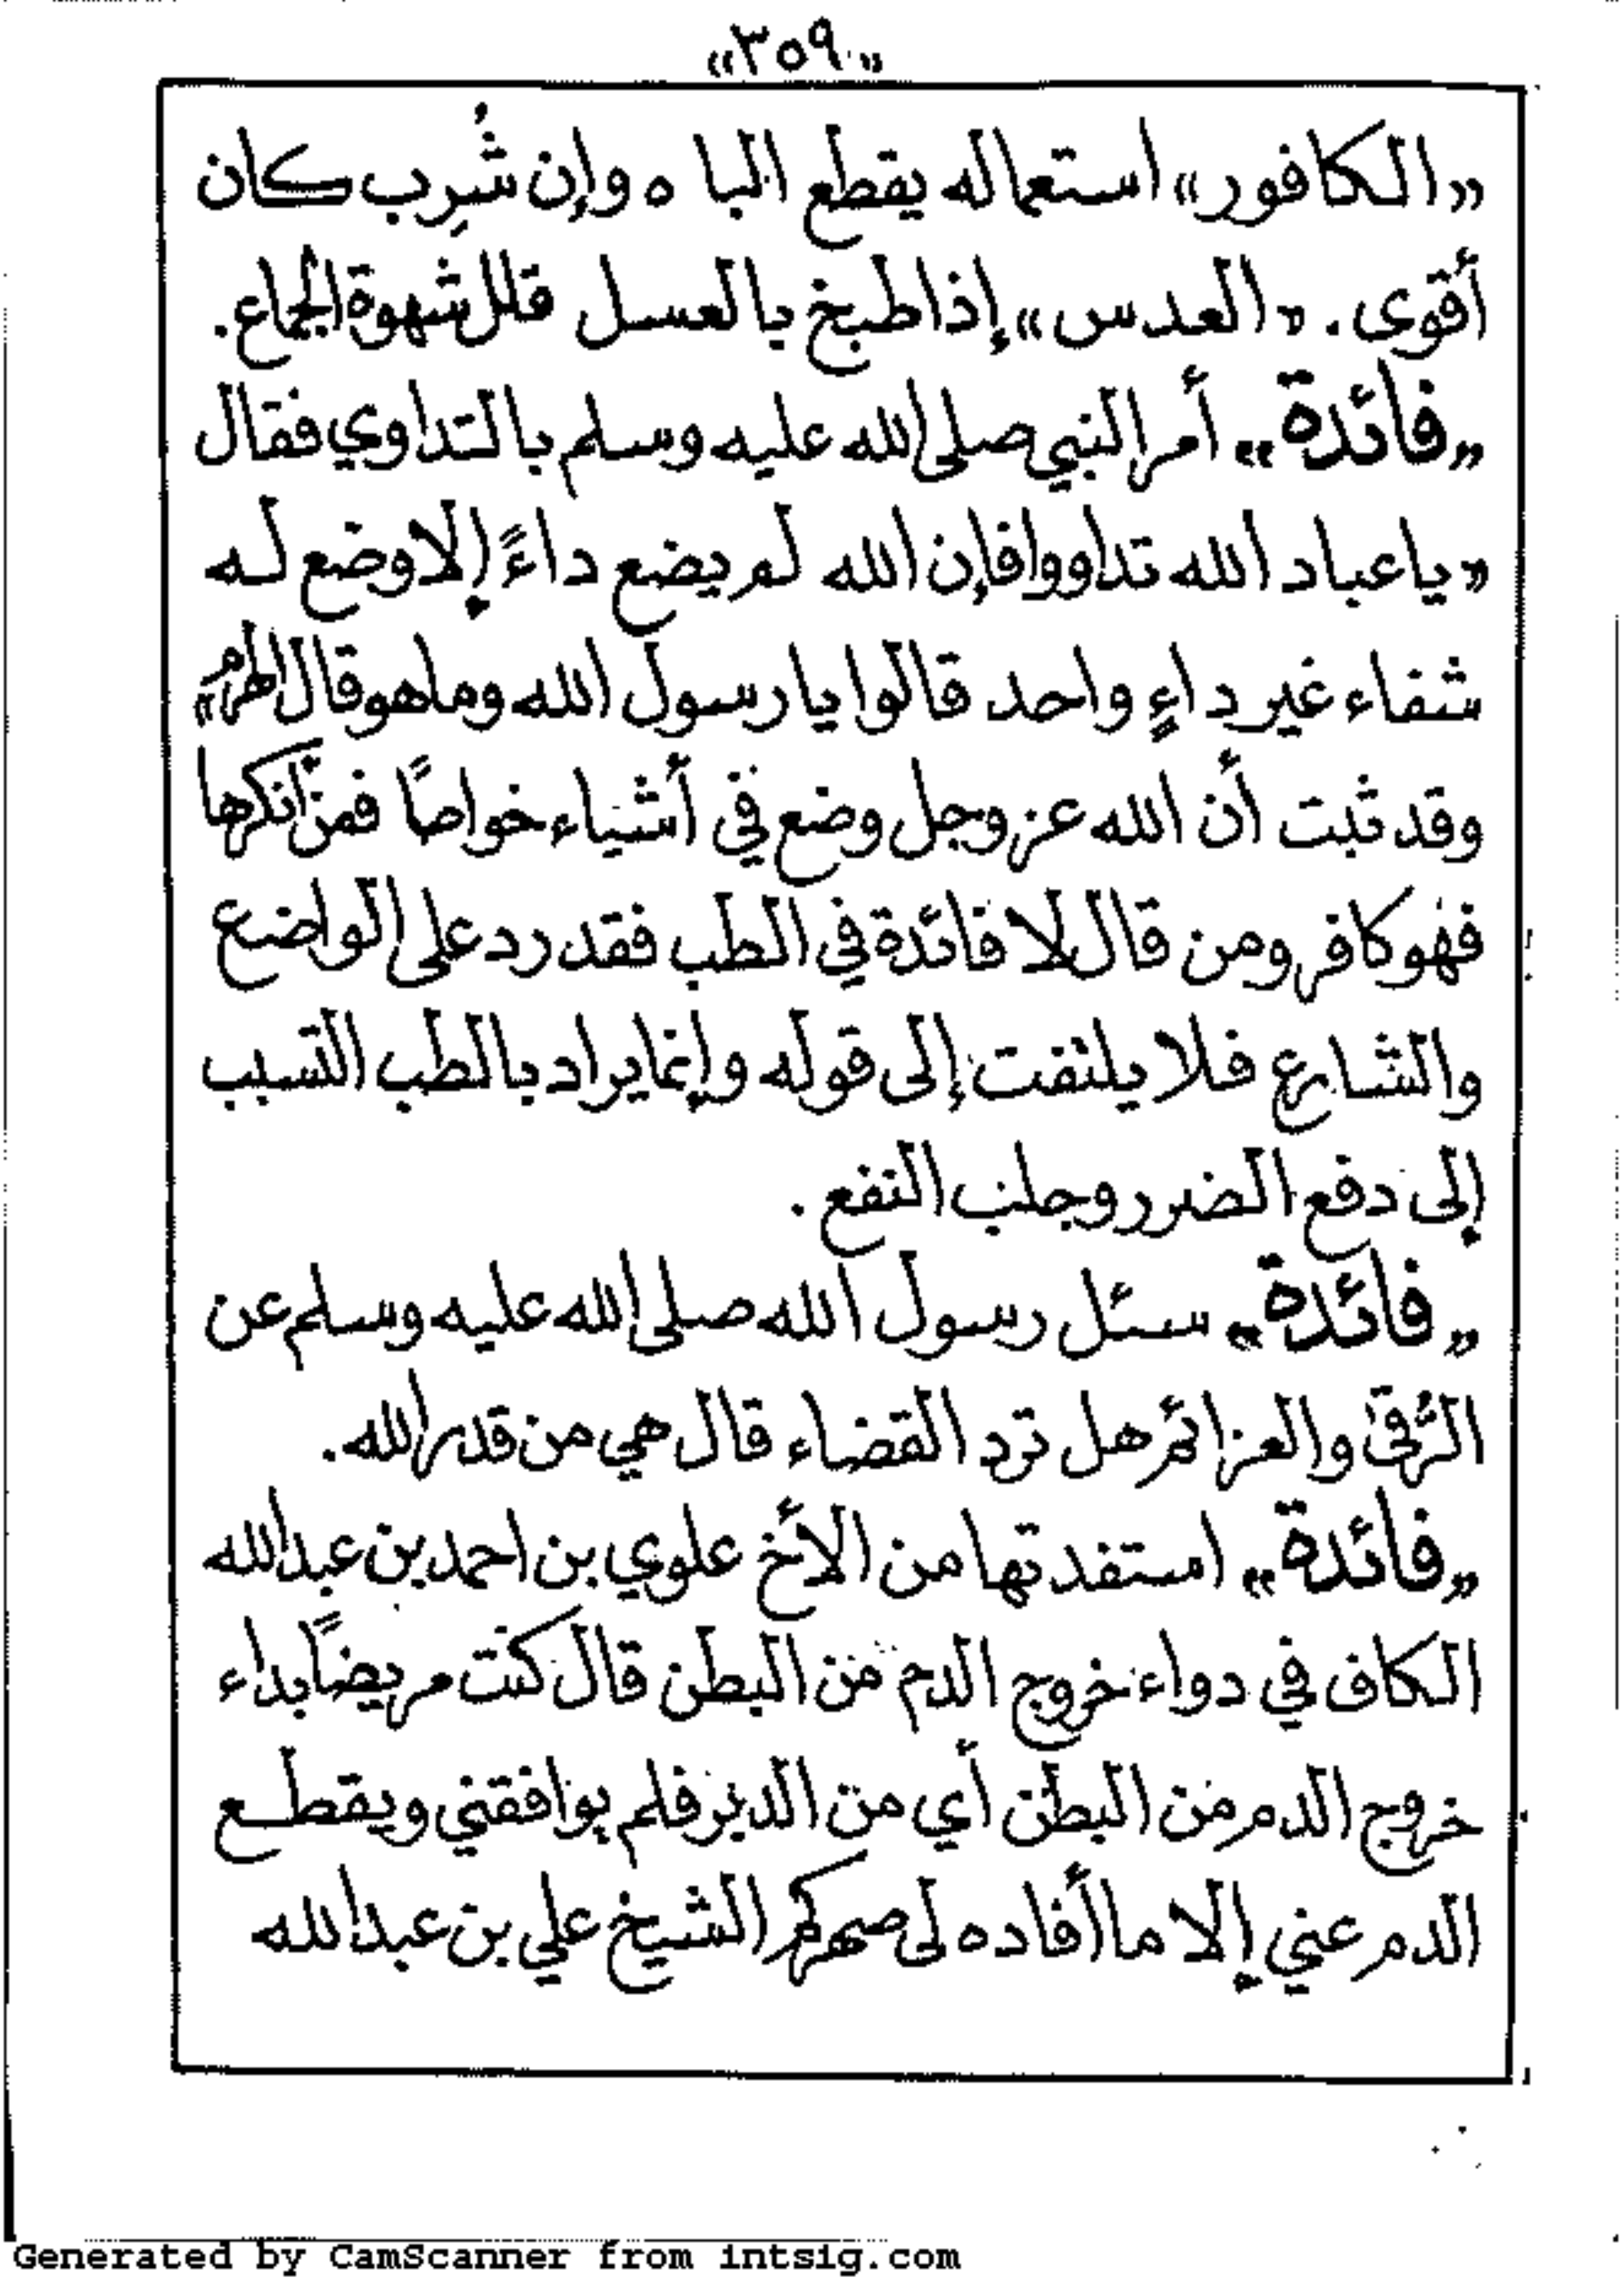 «٣٥٩»
«الكافور» استعماله يقطع الباه وإن شُرِب كان
أقوى. «العدس» إذا طبخ بالعسل قلل شهوة الجماع.
«فائدة» أمر النبي صلى الله عليه وسلم بالتداوي فقال
«يا عباد الله تداووا فإن الله لم يضع داءً إلا وضع له
شفاء غير داءٍ واحد قالوا يا رسول الله وما هو قال الهرم»
وقد ثبت أن الله عز وجل وضع في أشياء خواصاً فمن أنكرها
فهو كافر ومن قال لا فائدة في الطب فقد رد على الواضع
والشارع فلا يلتفت إلى قوله وإنما يراد بالطب التسبب
إلى دفع الضرر وجلب النفع.
«فائدة» سئل رسول الله صلى الله عليه وسلم عن
الرُقى والعزائم هل ترد القضاء قال هي من قدر الله.
«فائدة» استفدتها من الأخ علوي بن احمد بن عبدالله
الكاف في دواء خروج الدم من البطن قال كنت مريضاً بداء
خروج الدم من البطن أي من الدبر فلم يوافقني ويقطع
الدم عني إلا ما أفاده لى صهركم الشيخ علي بن عبدالله
Generated by CamScanner from intsig.com